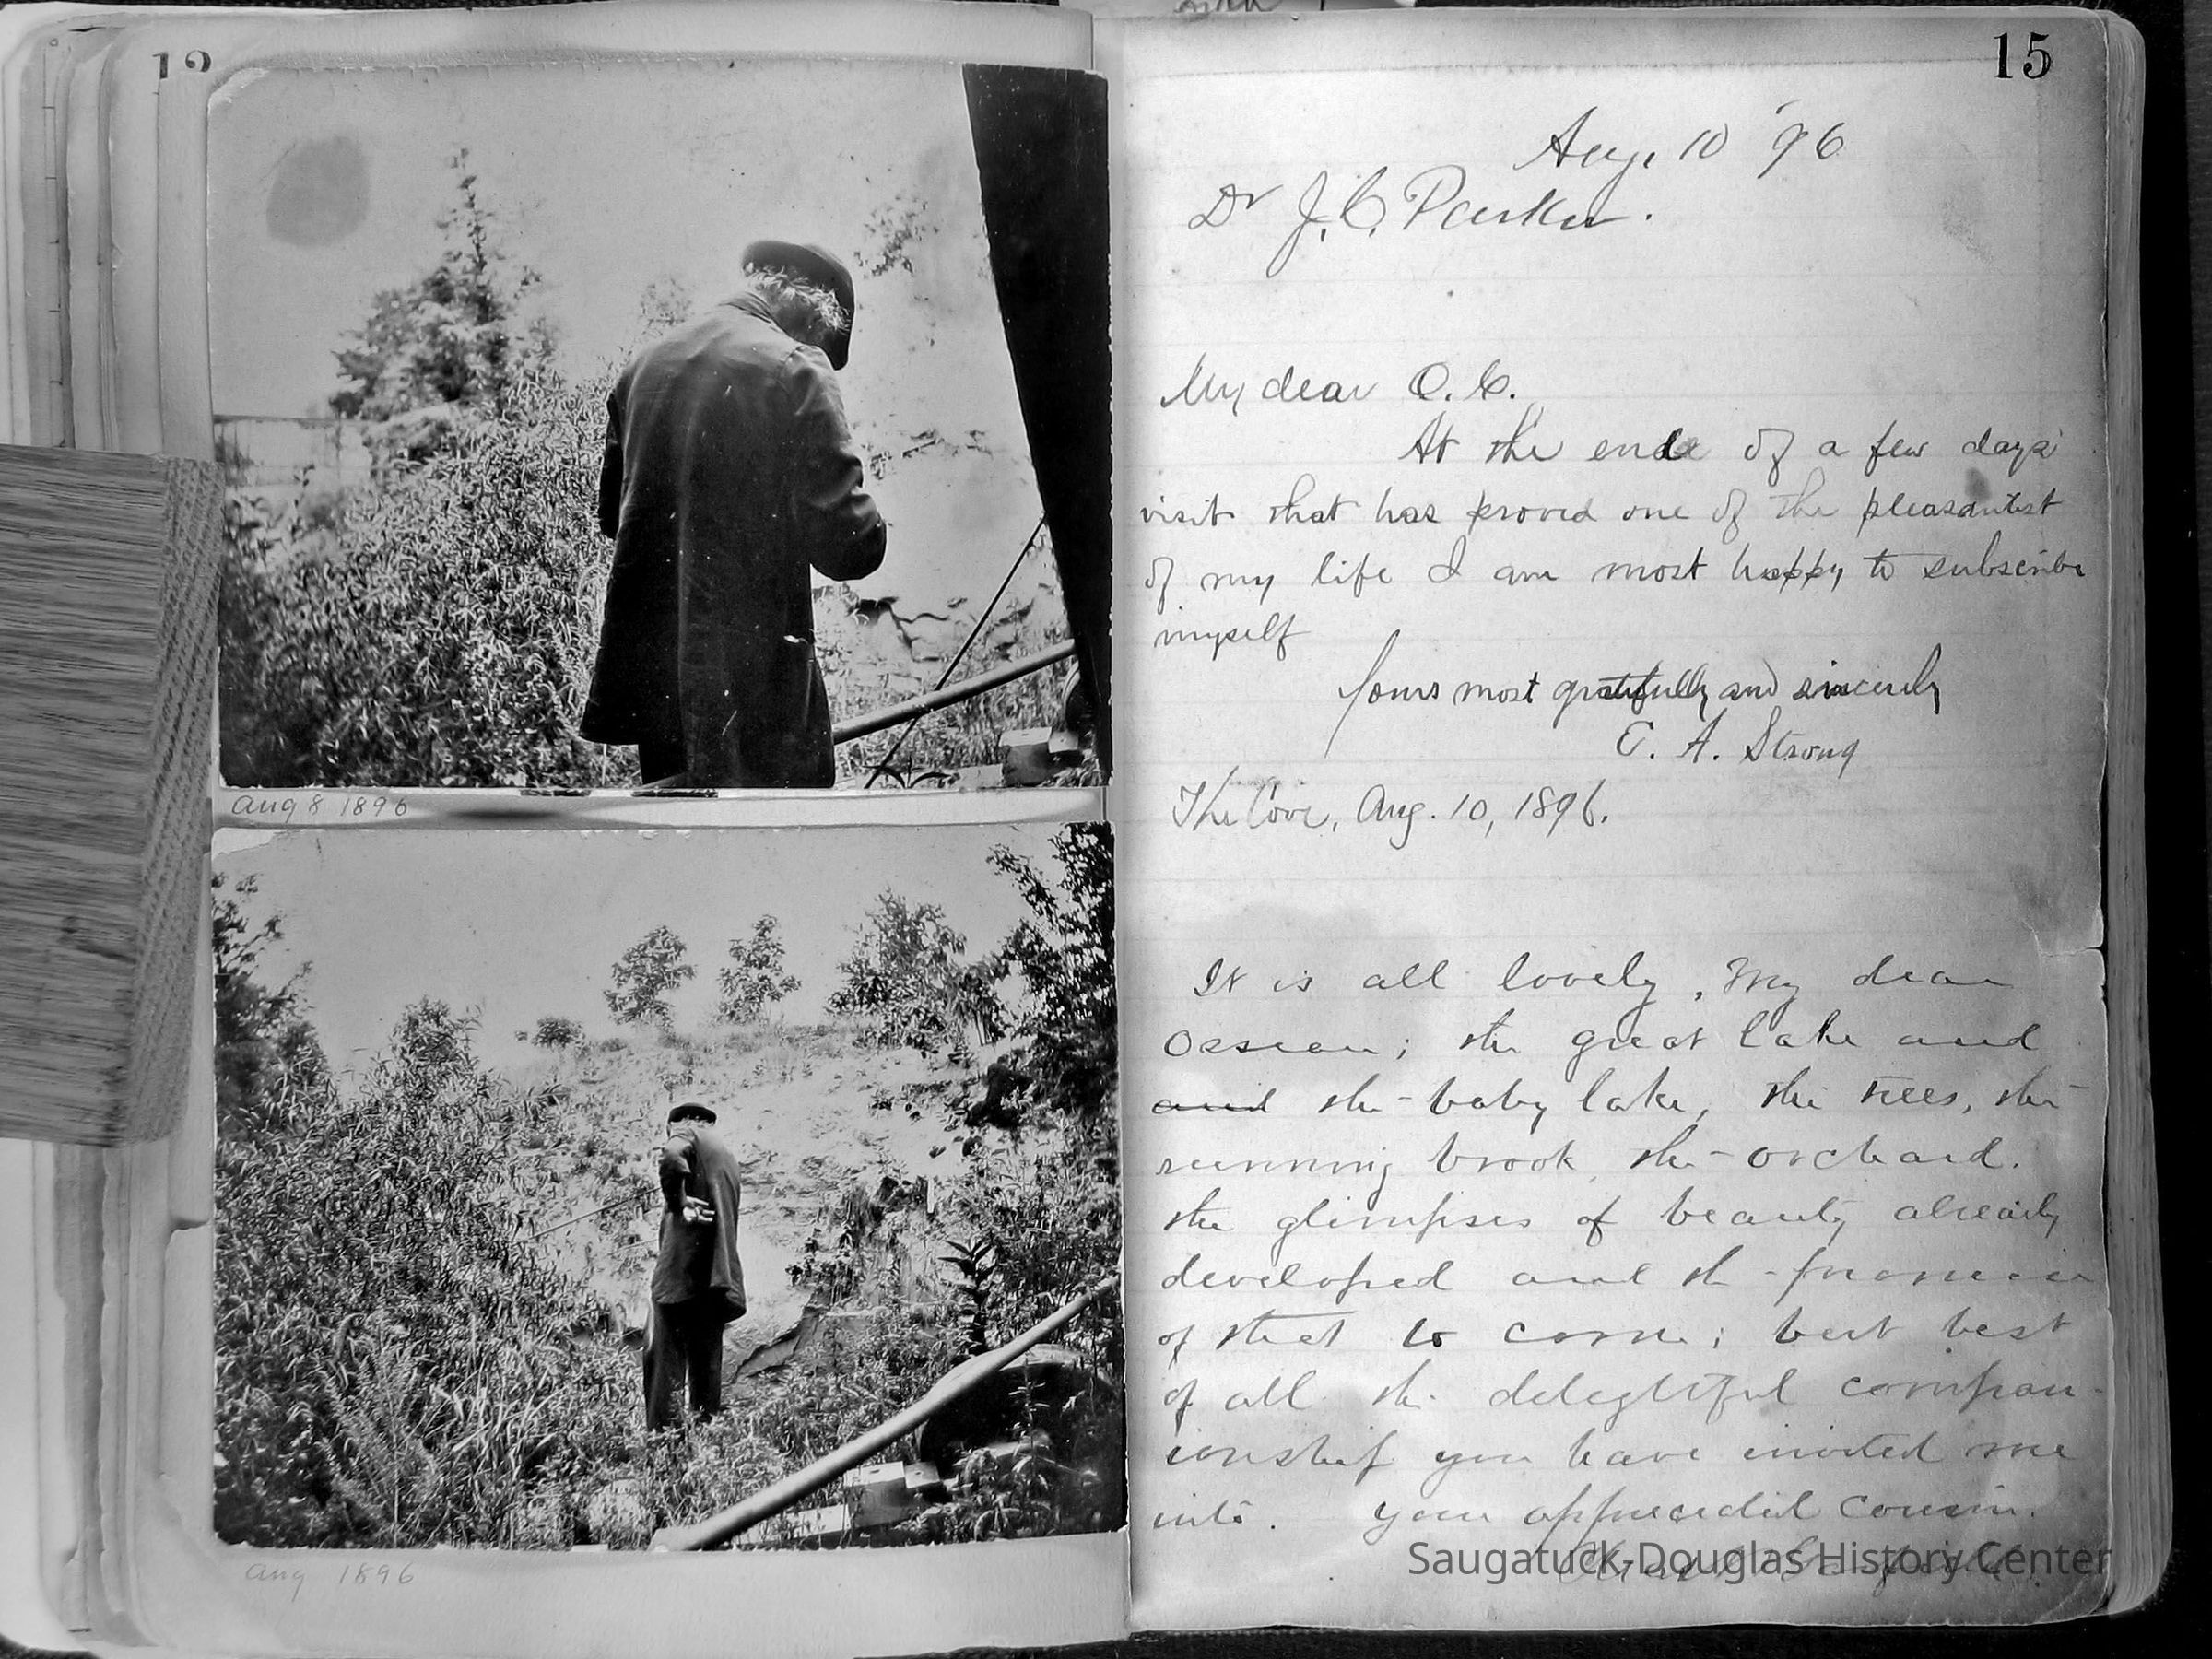 12
Aug 8 1896
Aug 1896
15
Aug. 10 '96
Dr J. C. Parker.
My dear O. C.
At the end of a few days'
visit that has proved one of the pleasantest
of my life I am most happy to subscribe
myself
Yours most gratefully and sincerely
E. A. Strong
The Cove, Aug. 10, 1896.
It is all lovely, my dear
Ossian; the great lake and
and the baby lake, the trees, the
running brook, the orchard.
the glimpses of beauty already
developed and the promise
of that to come; but best
of all the delightful compan-
ionship you have invited me
into. Your cousin.
Saugatuck-Douglas History Center